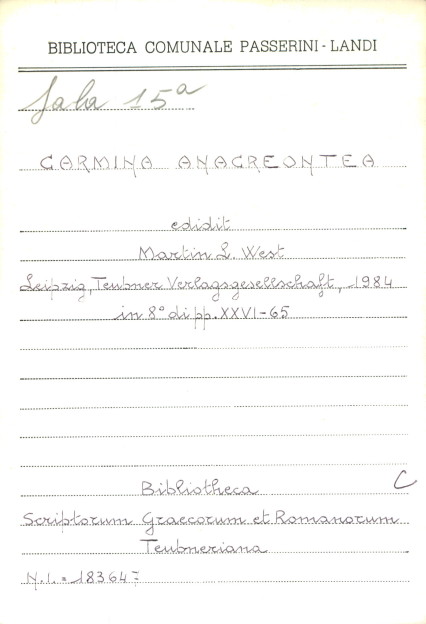 BIBLIOTECA COMUNALE PASSERINI - LANDI
Sala 15a
CARMINA ANACREONTEA
edidit
Martin L. West
Leipzig, Teubner Verlagsgesellschaft, 1984
in 8° di pp. XXVI-65
Bibliotheca
C
Scriptorum Graecorum et Romanorum
Teubneriana
N.I. = 18364=